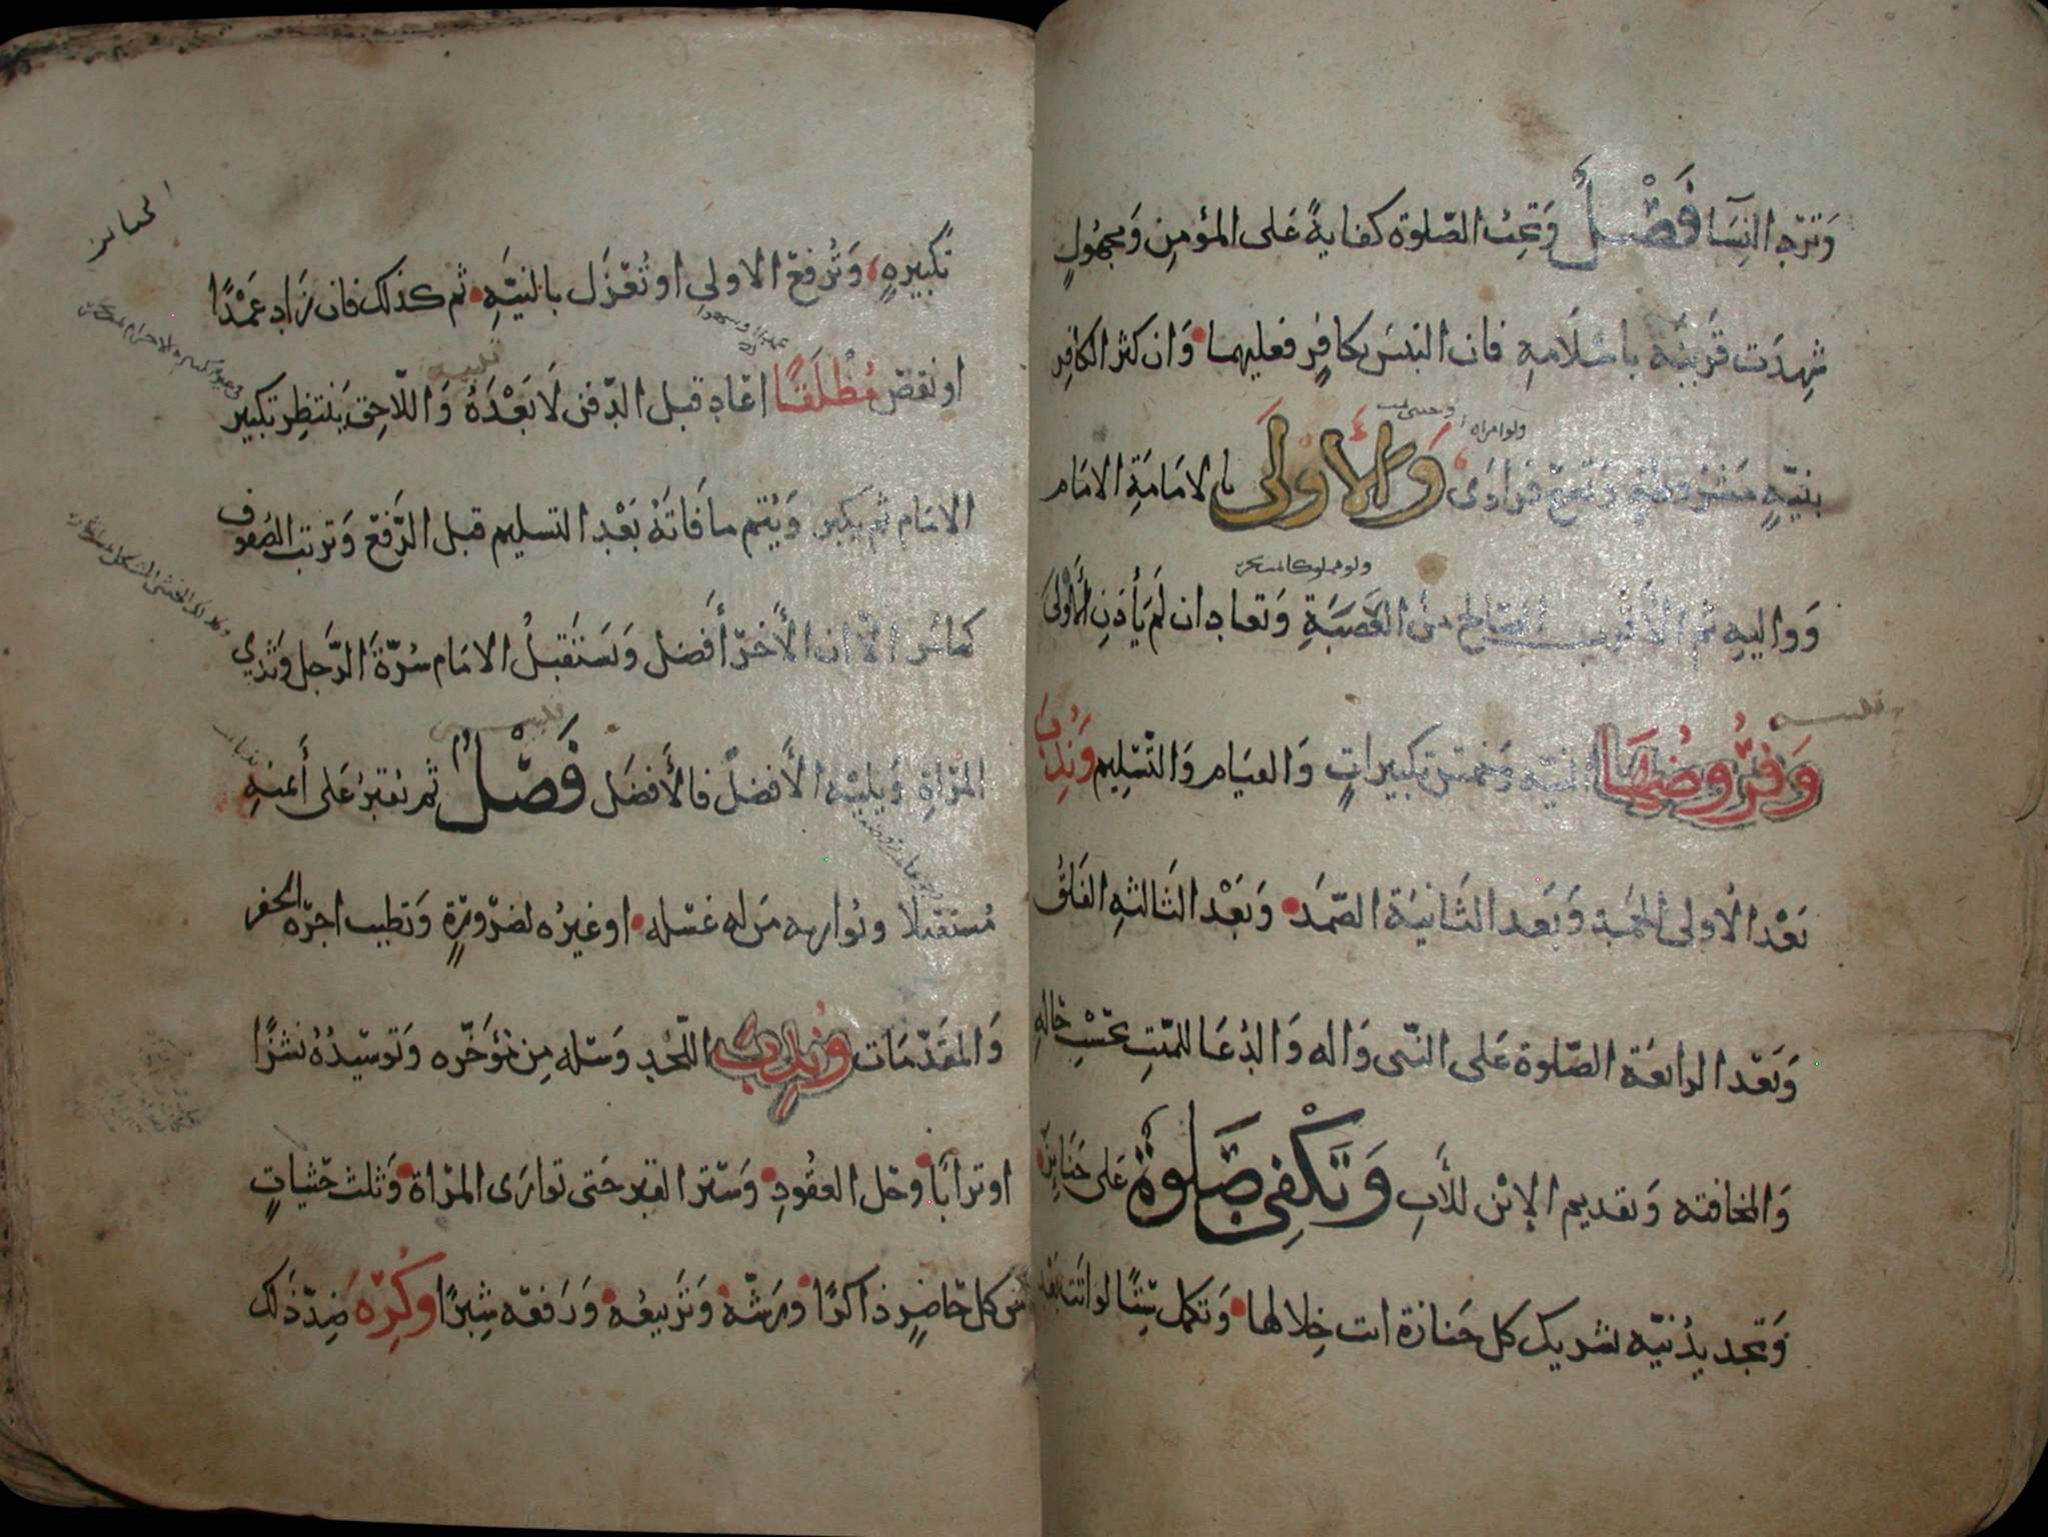 وَتَرد النِسَآ فَصْلٌ وَتجب الصّلوة كفايةً عَلى المؤمِنِ وَمجهُولٍ
شهدَت قَرينَة باسْلَامِهِ فان التبسَ بكافِرٍ فعليهما وَان كثر الكافِر
بنيّةٍ مَشرُوطةٍ وَتصِحّ فرادَى وَالأَوْلَى بالامَامَةِ الامَام
ولو امراه
وَواليهِ ثم الأَقربُ الصَالح منَ العَصَبَةِ وَتعاد ان لَم يَأذن الأَوْلَى
وَفرُوضُهَا النيّه وَخمسُ تكبيراتٍ وَالقيَام وَالتّسْلِيم وَنُدِبَ
بَعْد الأولى الحمد وَبَعد الثَانيَة الصّمَد وَبَعْد الثَالثه الفَلَقُ
وَبَعْد الرابعَة الصّلوة عَلى النّبي وَاله وَالدُعَا للميّتِ بحَسْبِ حَالهِ
وَالمخافته وَتقديم الإبْن للأَبِ وَتَكْفِي صَلوةٌ عَلى جَنَايِزَ
وَتجديدُ نيّه تشريك كل جَنازة اتت خِلالها وَتكمل سِتًّا لو اتت بَعْد
الجنائز
تكبيرهٍ وَتُرفعُ الاولى او تُعْزَل بالنيّهِ ثم كذلك فان زاد عَمْدًا
او نقصَ مُطْلَقًا اعَاد قبل الدّفن لَا بَعْدَهُ وَاللّاحِق يَنتظِر تكبير
الامَام ثم يكبر وَيُتم ما فَاتَهُ بَعْد التسليم قبل الرَّفعْ وَترتب الصُفوف
كمامَر الّا ان الأَخرّ أَفضل وَيَستَقبلُ الامَام سُرّةَ الرَّجل وَثَدْي
المرْاةِ وَيليْه الأَفضلُ فالأَفضَل فَصْلٌ ثم يُقبرُ عَلى أَيمنهِ
مُستقبلًا وتُواريه مَن له غسْله او غيرُه لضرْورةٍ وَتطيب اجرَة الحفر
وَالمقدّمات وَنُدِبَ اللّحْد وَسَله مِن مُؤخّره وَتَوسّيدُهُ نشزًا
او ترابًا وَحَل العقُودِ وَسَتر القبر حَتى توارَى المرْاة وَثلث حَثيَاتٍ
من كل حَاضِرٍ ذاكرًا وَرَشّه وَتَرْبيعُه وَرَفعه شِبرًا وكُرِه ضِدّ ذَلك